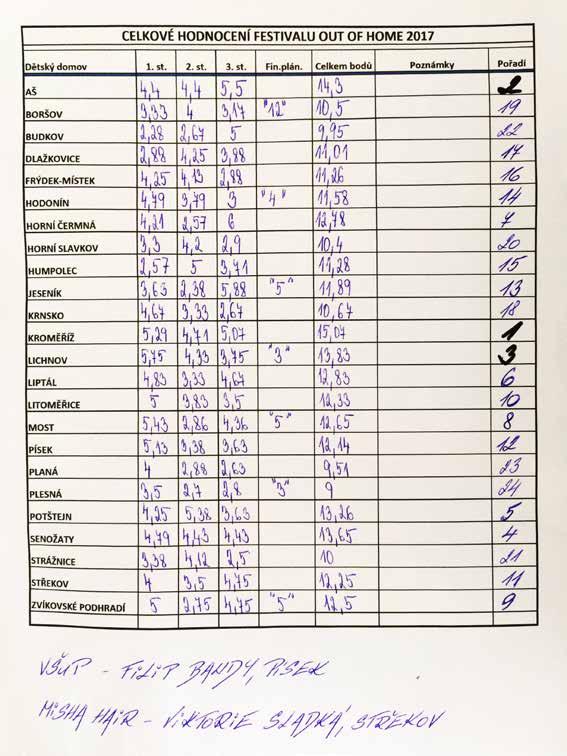 CELKOVÉ HODNOCENÍ FESTIVALU OUT OF HOME 2017
Dětský domov 1. st. 2. st. 3. st. Fin.plán. Celkem bodů Poznámky Pořadí
AŠ 4,4 4,4 5,5 14,3 2
BORŠOV 3,33 4 3,17 "12" 10,5 19
BUDKOV 2,28 2,67 5 9,95 22
DLAŽKOVICE 2,88 4,25 3,88 11,01 17
FRÝDEK-MÍSTEK 4,25 4,13 2,88 11,26 16
HODONÍN 4,79 3,79 3 "4" 11,58 14
HORNÍ ČERMNÁ 4,21 2,57 6 12,78 7
HORNÍ SLAVKOV 3,3 4,2 2,9 10,4 20
HUMPOLEC 2,57 5 3,71 11,28 15
JESENÍK 3,63 2,38 5,88 "5" 11,89 13
KRNSKO 4,67 3,33 2,67 10,67 18
KROMĚŘÍŽ 5,29 4,71 5,07 15,07 1
LICHNOV 5,75 4,33 3,75 "3" 13,83 3
LIPTÁL 4,83 3,33 4,67 12,83 6
LITOMĚŘICE 5 3,83 3,5 12,33 10
MOST 5,43 2,86 4,36 "5" 12,65 8
PÍSEK 5,13 3,38 3,63 12,14 12
PLANÁ 4 2,88 2,63 9,51 23
PLESNÁ 3,5 2,7 2,8 "3" 9 24
POTŠTEJN 4,25 5,38 3,63 13,26 5
SENOŽATY 4,79 4,43 4,43 13,65 4
STRÁŽNICE 3,38 4,12 2,5 10 21
STŘEKOV 4 3,5 4,75 12,25 11
ZVÍKOVSKÉ PODHRADÍ 5 2,75 4,75 "5" 12,5 9
VŠUP - FILIP BANDY, PISEK
MISHA HAIR - VIKTORIE SLADKÁ, STŘEKOV